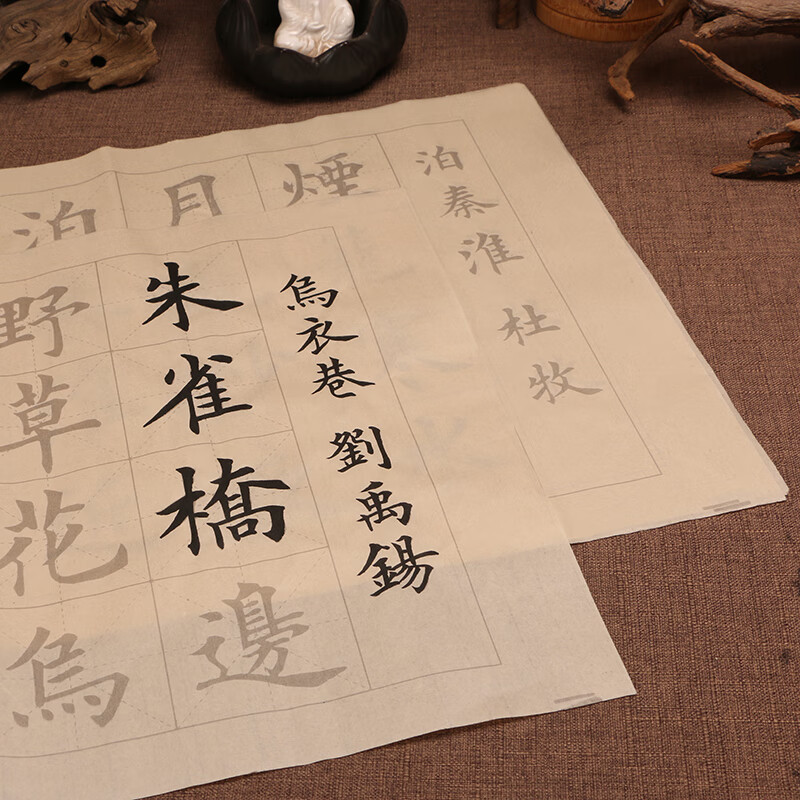 烏衣巷 劉禹錫
朱雀橋邊
野草花烏
泊秦淮 杜牧
煙
月
泊